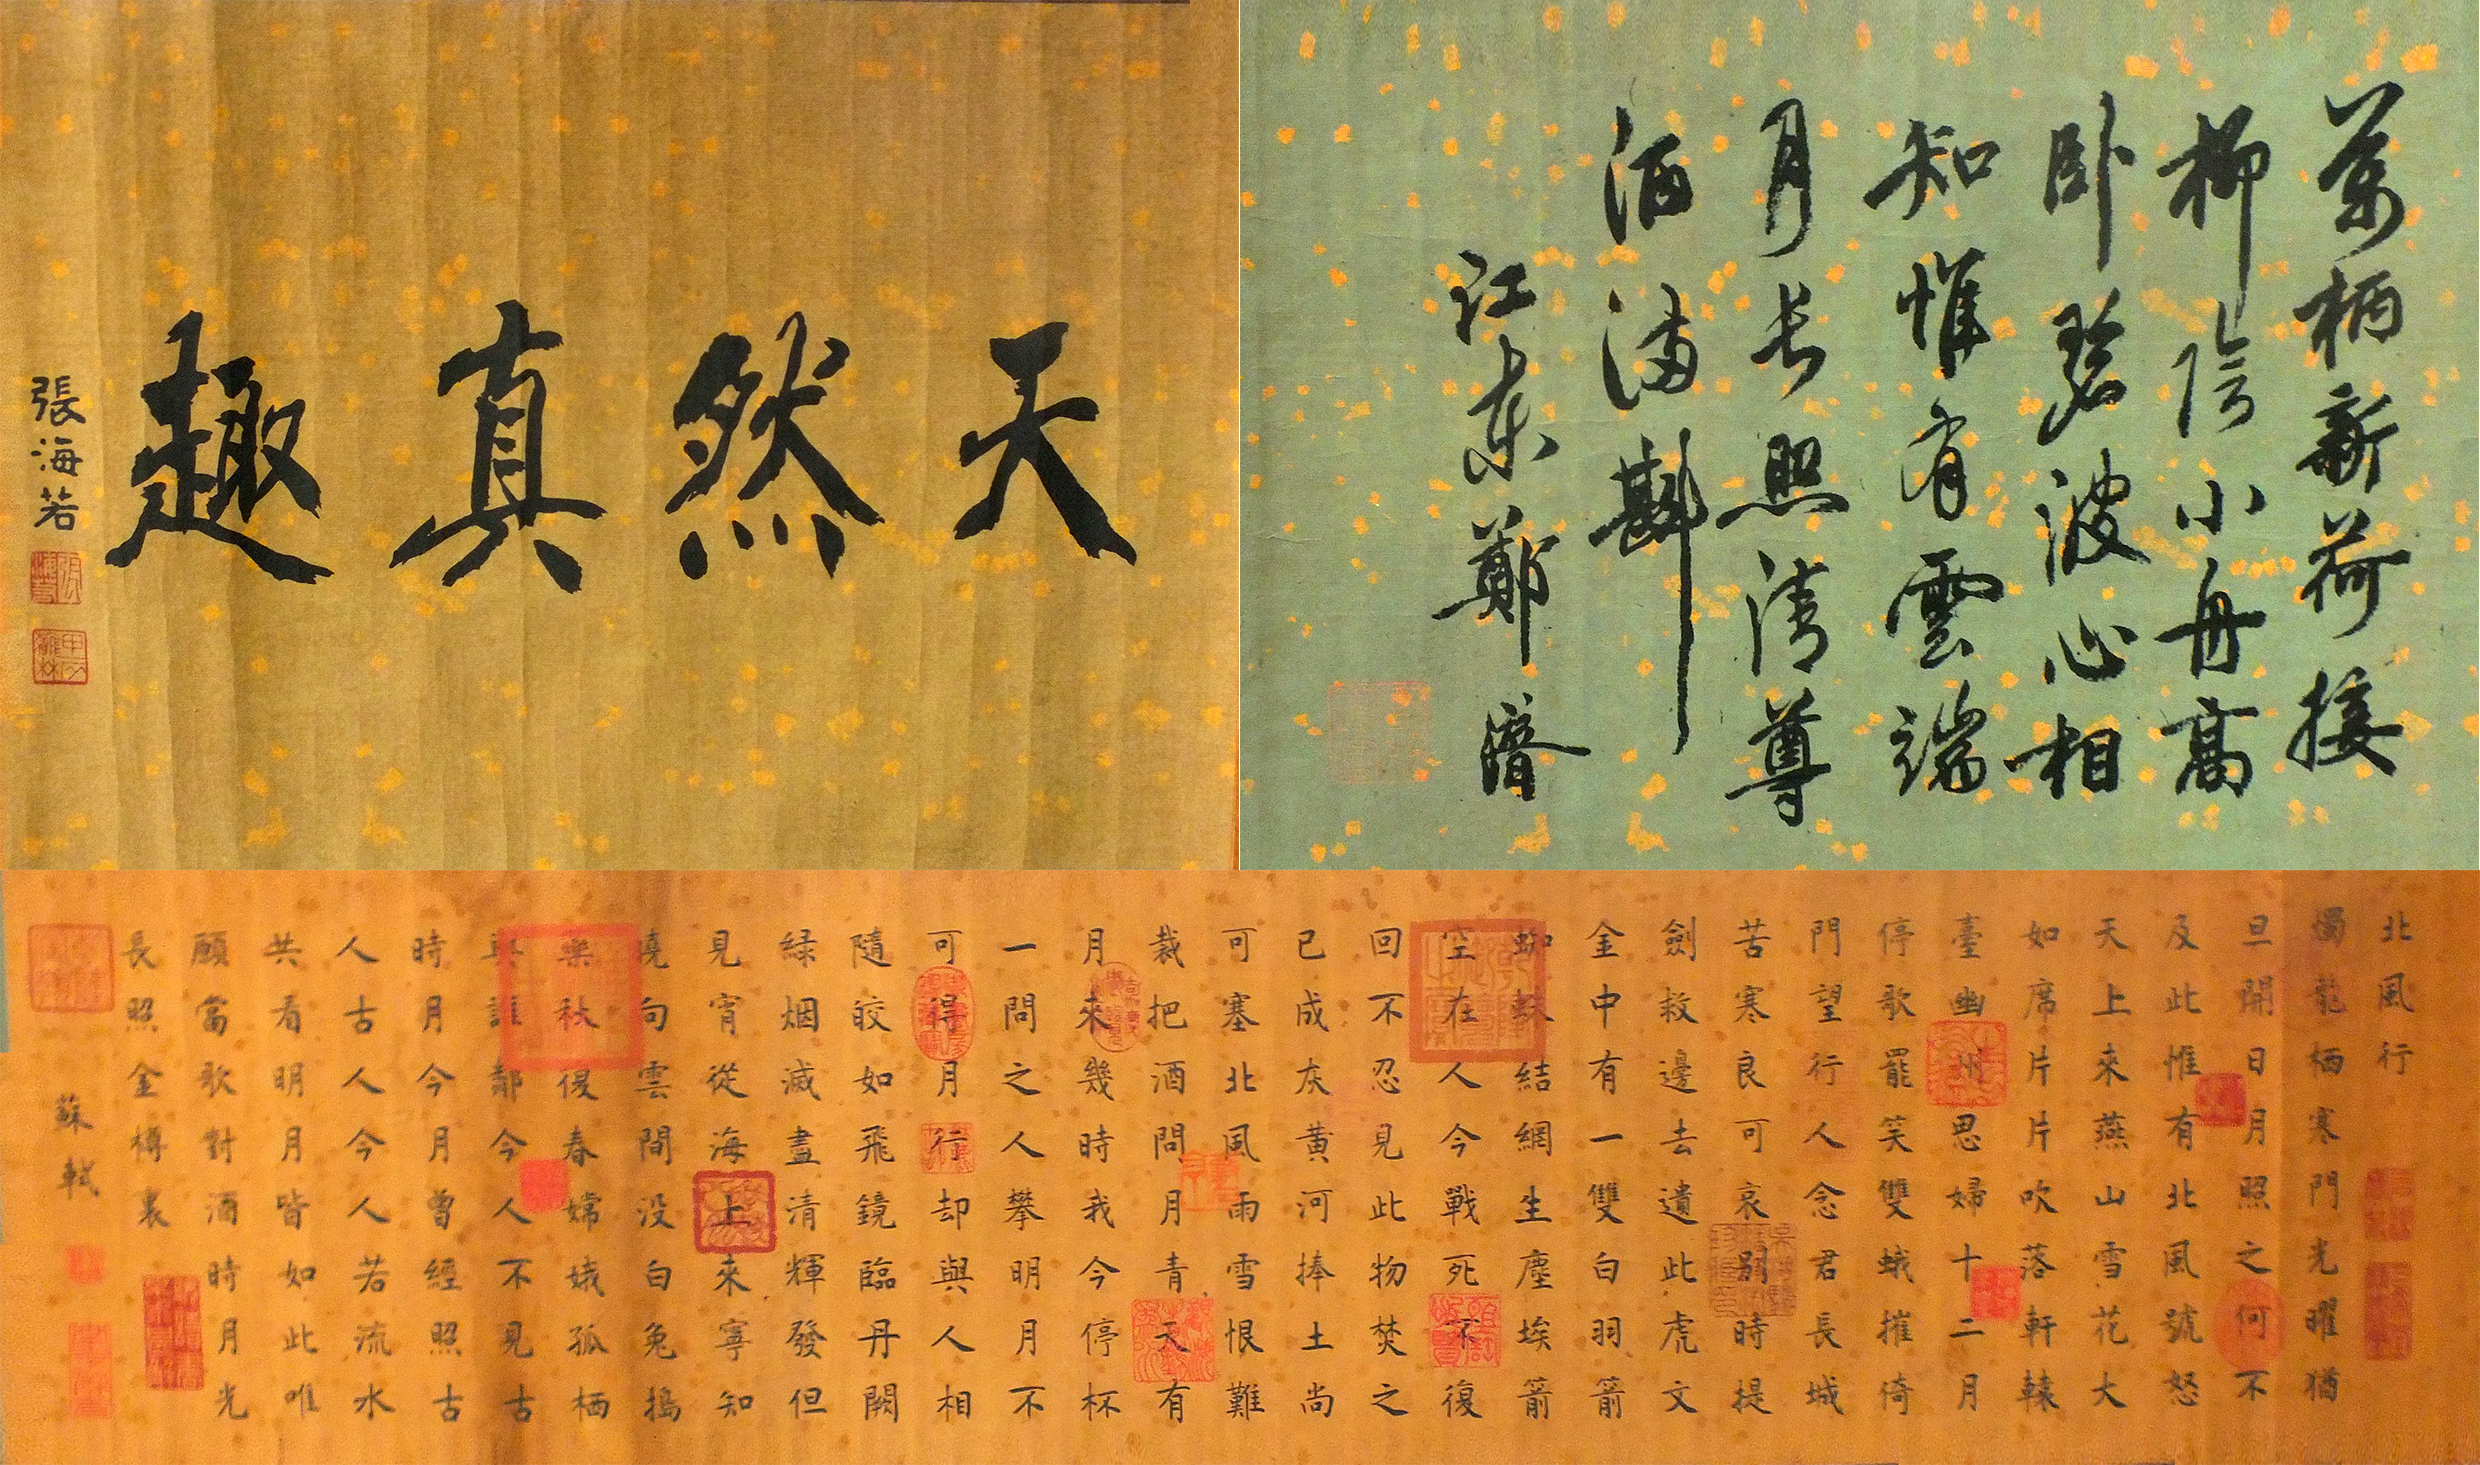 天然真趣
張海若
萬柄新荷接
柳陰小舟高
卧碧波心相
知惟有雲端
月長照清尊
酒滿斟
江東鄭濬
北風行
燭龍栖寒門光曜猶
旦開日月照之何不
及此惟有北風號怒
天上來燕山雪花大
如席片片吹落軒轅
臺幽州思婦十二月
停歌罷笑雙蛾摧倚
門望行人念君長城
苦寒良可哀別時提
劍救邊去遺此虎文
金中有一雙白羽箭
蜘蛛結網生塵埃箭
空在人今戰死不復
回不忍見此物焚之
已成灰黄河捧土尚
可塞北風雨雪恨難
裁把酒問月青天有
月來幾時我今停杯
一問之人攀明月不
可得月行却與人相
隨皎如飛鏡臨丹闕
緑烟滅盡清輝發但
見宵從海上來寧知
曉向雲間没白兔搗
藥秋復春嫦娥孤栖
與誰鄰今人不見古
時月今月曾經照古
人古人今人若流水
共看明月皆如此唯
願當歌對酒時月光
長照金樽裏
蘇軾